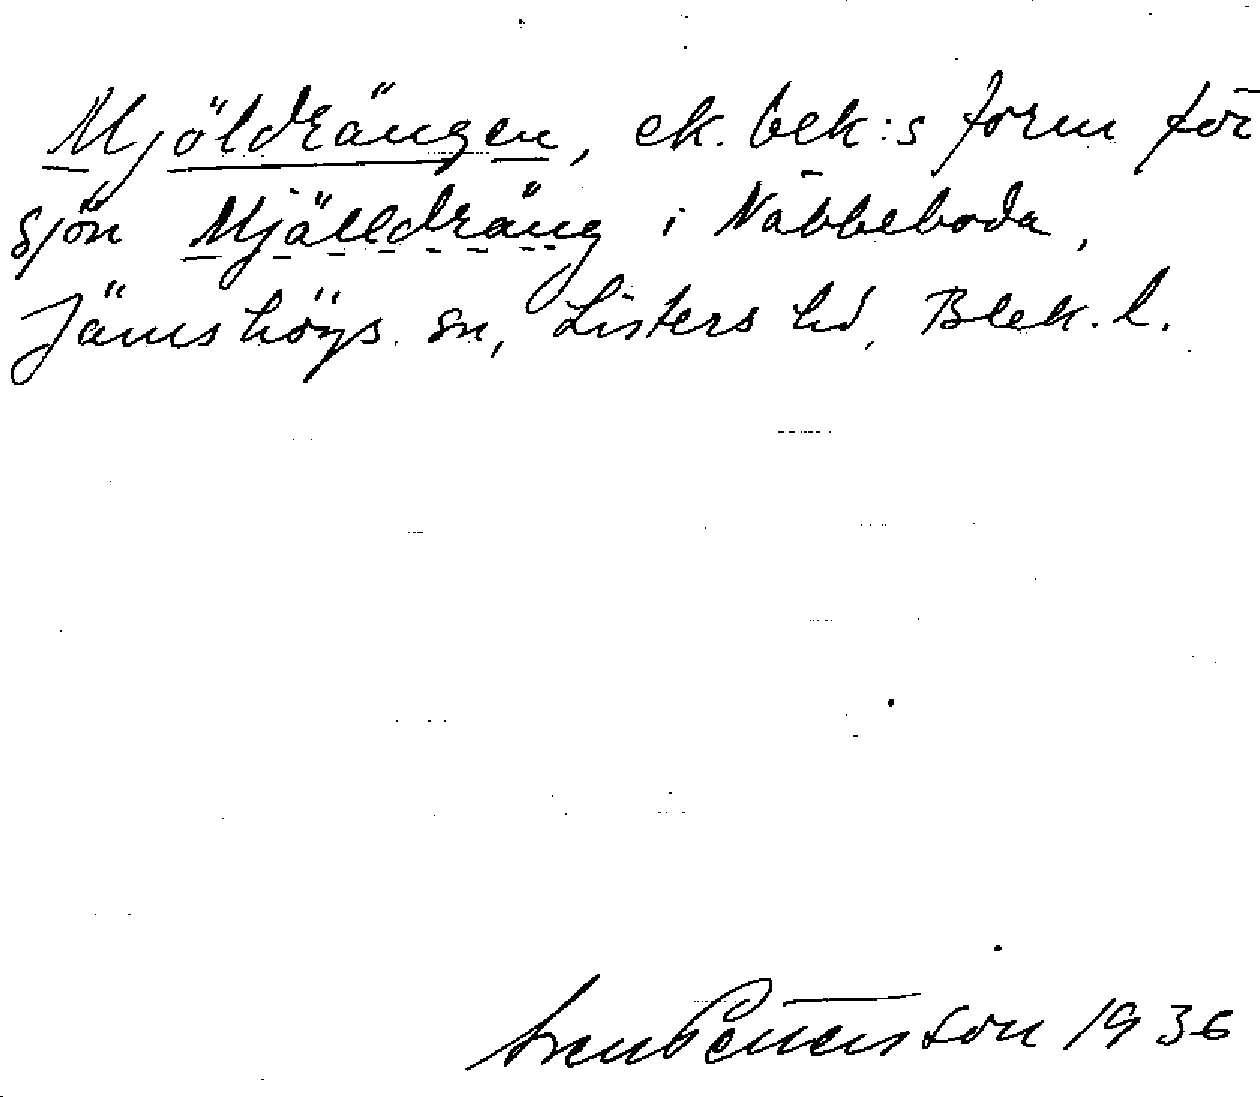 Mjöldrängen, ek. bek:s form för
sjön Mjälldräng i Näbbeboda,
Jämshögs sn, Listers hd, Blek. l.
Sven Pettersson 1936